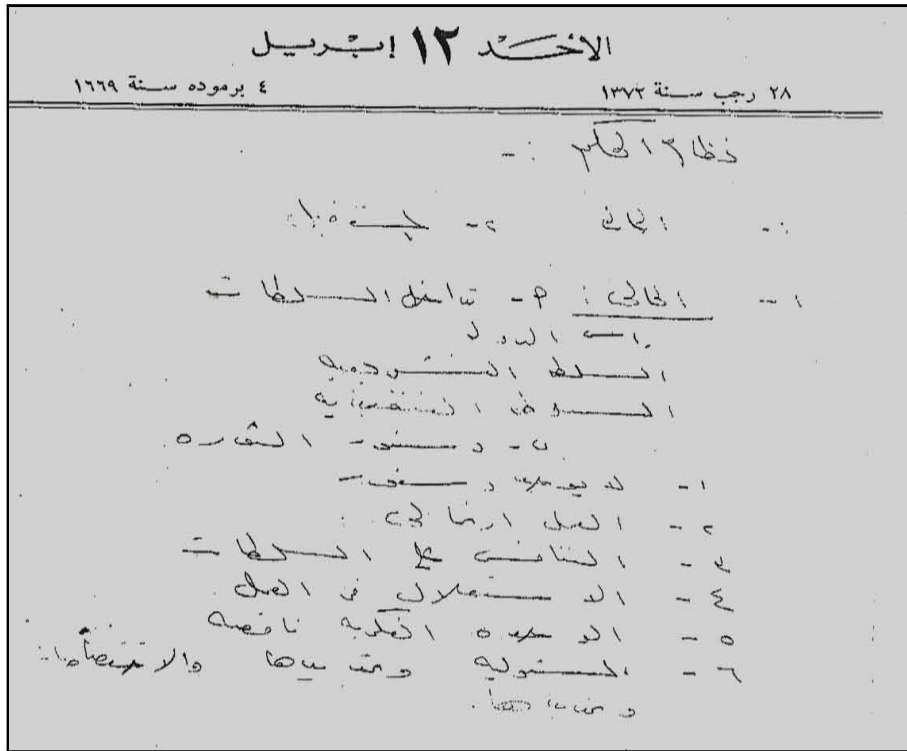 الأحد ١٢ إبريل
٢٨ رجب سنة ١٣٧٢ ٤ برموده سنة ١٦٦٩
نظام الحكم :-
:- الحالى ٢-
١- الحالى : ٢- تداخل السلطات
راس الدولة
السلطه التشريعيه
السلطه التنفيذيه
ب- دستور الثوره
١- لا يوجد دستور
٢- العمل ارتجالى :
٣- التنافس على السلطات
٤- الاستقلال فى العمل
٥- الوحده الفكريه ناقصه
٦- المسئوليه وتحديدها والاختصاصات
وتحديدها.